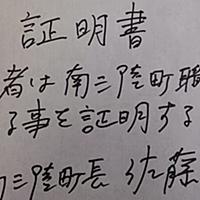 証明書
者は南三陸町職
る事を証明する
三陸町長 佐藤